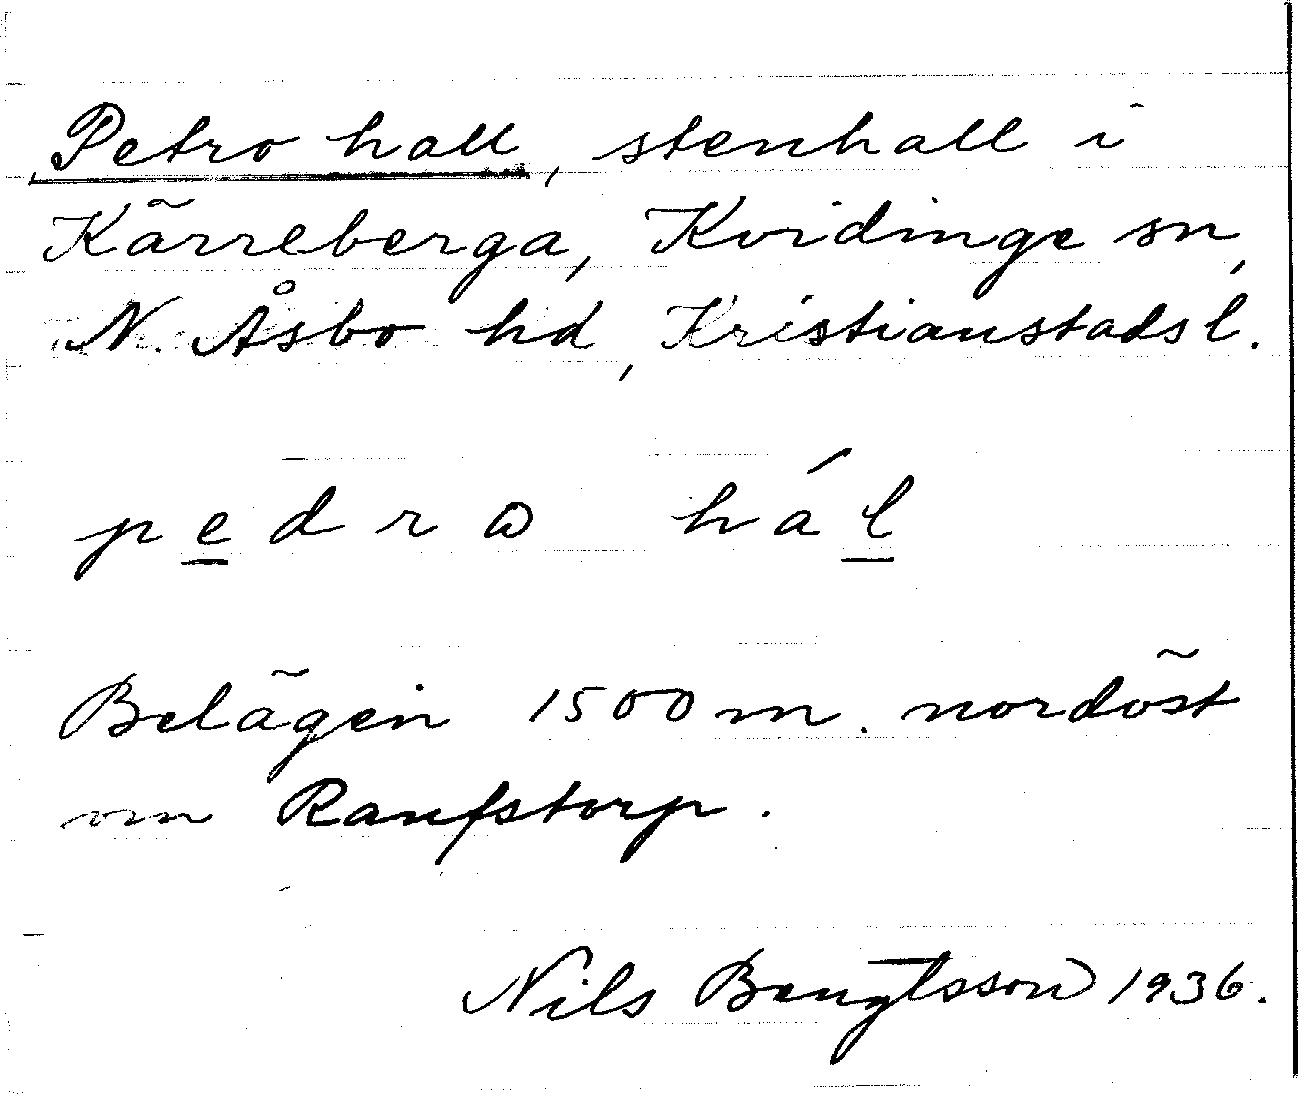 Petro hall, stenhall i
Kärreberga, Kvidinge sn,
N. Åsbo hd, Kristianstads l.
pedrω hál
Belägen 1500 m. nordöst
om Ranfstorp.
Nils Bengtsson 1936.